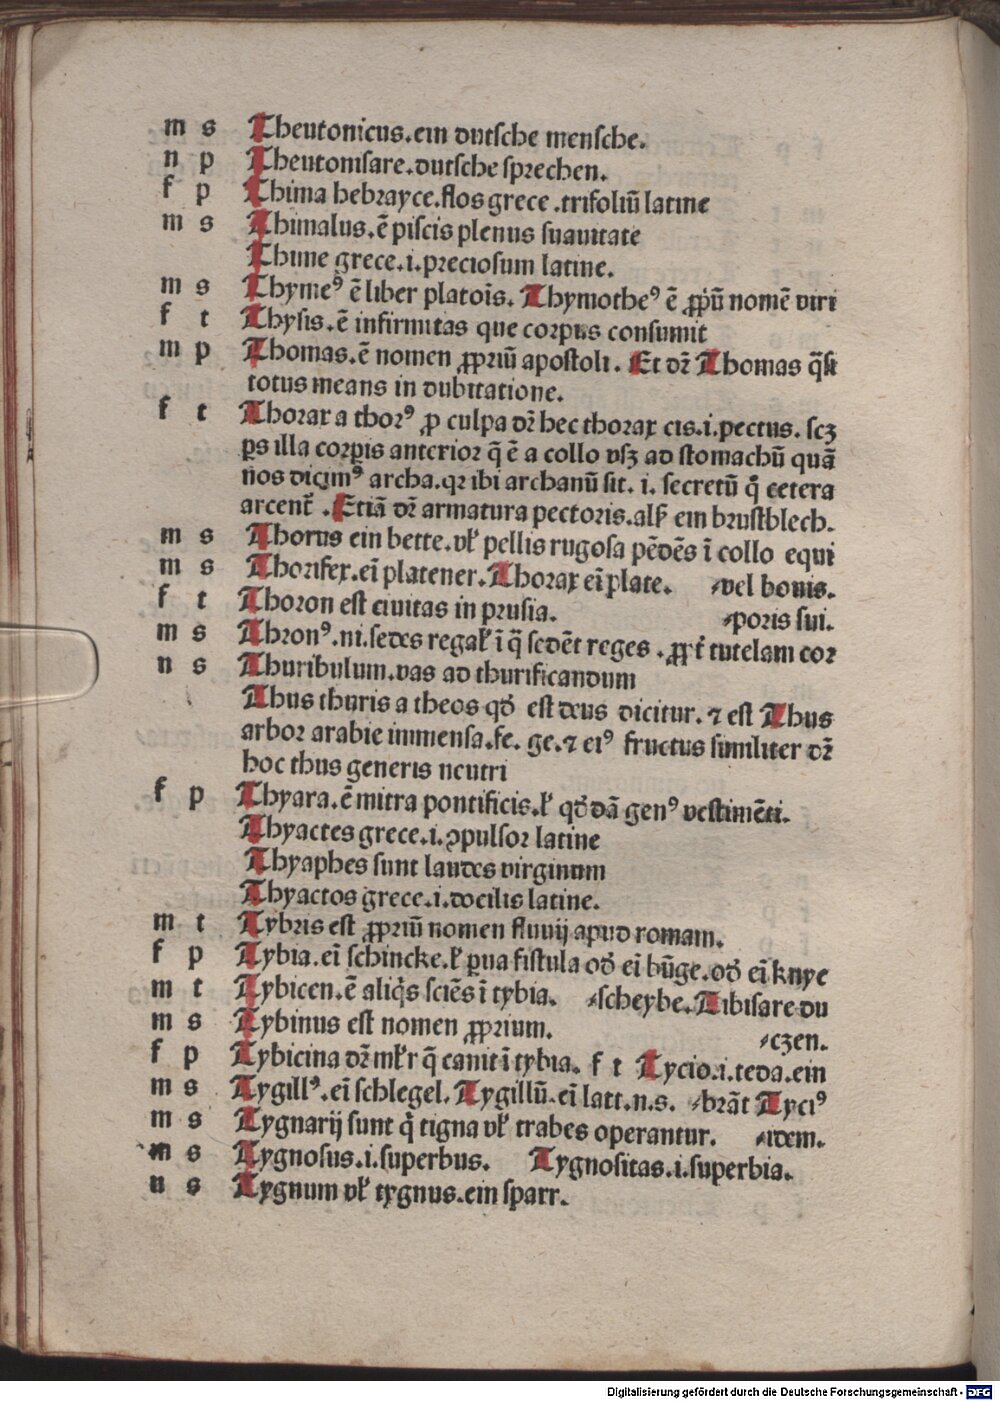 m s Theutonicus.ein dutsche mensche.
n p Theutonisare.dutsche sprechen.
f p Thima hebrayce.flos grece .trifoliū latine
m s Thimalus.ē piscis plenus suauitate
Thime grece.i.preciosum latine.
m s Thymeꝰ ē liber platoīs. Thymotheꝰ ē ꝓpͥū nomē viri
f t Thysis.ē infirmitas que corpus consumit
m p Thomas.ē nomen ꝓpriū apostoli. Et dr̄ Thomas q̄si
totus means in dubitatione.
f t Thorax a thorꝰ ꝓ culpa dr̄ hec thorax cis.i.pectus. scꝫ
ꝑs illa corꝑis anterior q̄ ē a collo vsꝫ ad stomachū quā
nos dicimꝰ archa.qꝛ ibi archanū sit. i. secretū qͥ cetera
arcent̄ .Etiā dr̄ armatura pectoris.alꝭ ein brustblech.
m s Thorus ein bette.vl̕ pellis rugosa pēdēs ī collo equi
m s Thorifex.eī platener.Thorax eī plate. ⸗vel bouis.
f t Thoron est ciuitas in prusia. ⸗poris sui.
m s Thronꝰ.ni.sedes regal̕ ī q̄ sedēt reges .ꝓpt̄ tutelam cor
n s Thuribulum.vas ad thurificandum
Thus thuris a theos qd̕ est deus dicitur. ⁊ est Thus
arbor arabie immensa.fe. ge.⁊ eiꝰ fructus similiter dr̄
hoc thus generis neutri
f p Thyara.ē mitra pontificis.l̕ qd̕dā genꝰ vestimēti.
Thyactes grece.i.ꝯpulsor latine
Thyaphes sunt laudes virginum
Thyactos grece.i.docilis latine.
m t Tybris est ꝓpriū nomen fluuij apud romam.
f p Tybia.eī schincke.l̕ ꝑua fistula od̕ eī bu̅ge.od̕ eī knye
m t Tybicen.ē aliqͥs sciēs ī tybia. ⸗scheybe.Tibisare du
m s Tybinus est nomen ꝓprium. ⸗czen.
f p Tybicina dr̄ ml̕r q̄ canit ī tybia. f t Tycio.i.teda.ein
m s Tygillꝰ.eī schlegel.Tygillū.eī latt.n.s. ⸗brāt Tyciꝰ
m s Tygnarij sunt qͥ tigna vl̕ trabes operantur. ⸗idem.
m s Tygnosus.i.superbus. Tygnositas.i.superbia.
n s Tygnum vl̕ tygnus.ein sparr.
Digitalisierung gefördert durch die Deutsche Forschungsgemeinschaft - DFG